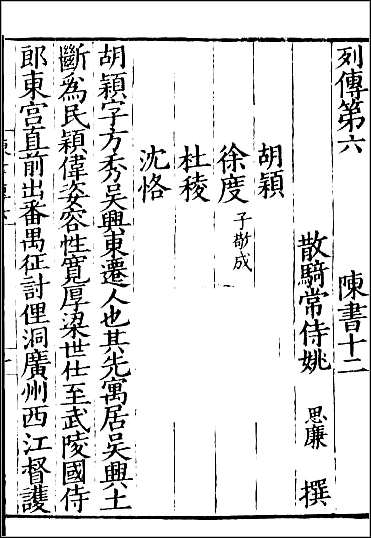 列傳第六 陳書十二
散騎常侍姚 思廉 撰
胡穎
徐度 子敬成
杜稜
沈恪
胡穎字方秀吳興東遷人也其先寓居吳興土
斷為民穎偉姿容性寬厚梁世仕至武陵國侍
郎東宫直前出番禺征討俚洞廣州西江督護